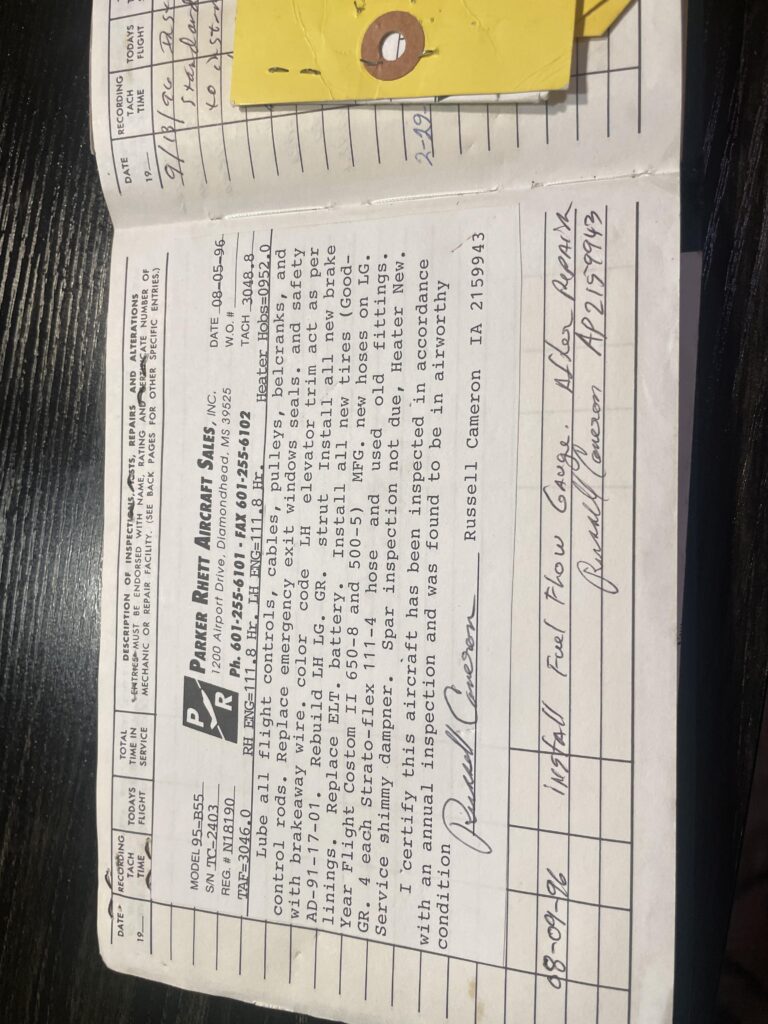 DATE
19
RECORDING
TACH
TIME
TODAYS
FLIGHT
9/13/96
standard
to
2-29
DATE
19
RECORDING
TACH
TIME
TODAYS
FLIGHT
TOTAL
TIME IN
SERVICE
DESCRIPTION OF INSPECTIONS, TESTS, REPAIRS AND ALTERATIONS
ENTRIES MUST BE ENDORSED WITH NAME, RATING AND CERTIFICATE NUMBER OF
MECHANIC OR REPAIR FACILITY. (SEE BACK PAGES FOR OTHER SPECIFIC ENTRIES.)
MODEL 95-B55
S/N TC-2403
REG. # N18190
TAF=3046.0
P R
PARKER RHETT AIRCRAFT SALES, INC.
1200 Airport Drive, Diamondhead, MS 39525
Ph. 601-255-6101 - FAX 601-255-6102
DATE 08-05-96
W.O. #
TACH 3048.8
RH ENG=111.8 Hr. LH ENG=111.8 Hr. Heater Hobs=0952.0
Lube all flight controls, cables, pulleys, belcranks, and
control rods. Replace emergency exit windows seals. and safety
with brakeaway wire. color code LH elevator trim act as per
AD-91-17-01. Rebuild LH LG. GR. strut Install all new brake
linings. Replace ELT. battery. Install all new tires (Good-
Year Flight Costom II 650-8 and 500-5) MFG. new hoses on LG.
GR. 4 each Strato-flex 111-4 hose and used old fittings.
Service shimmy dampner. Spar inspection not due, Heater New.
I certify this aircraft has been inspected in accordance
with an annual inspection and was found to be in airworthy
condition Russell Cameron Russell Cameron IA 2159943
08-09-96 install Fuel Flow Gauge. After Repairs
Russell Cameron AP2159943